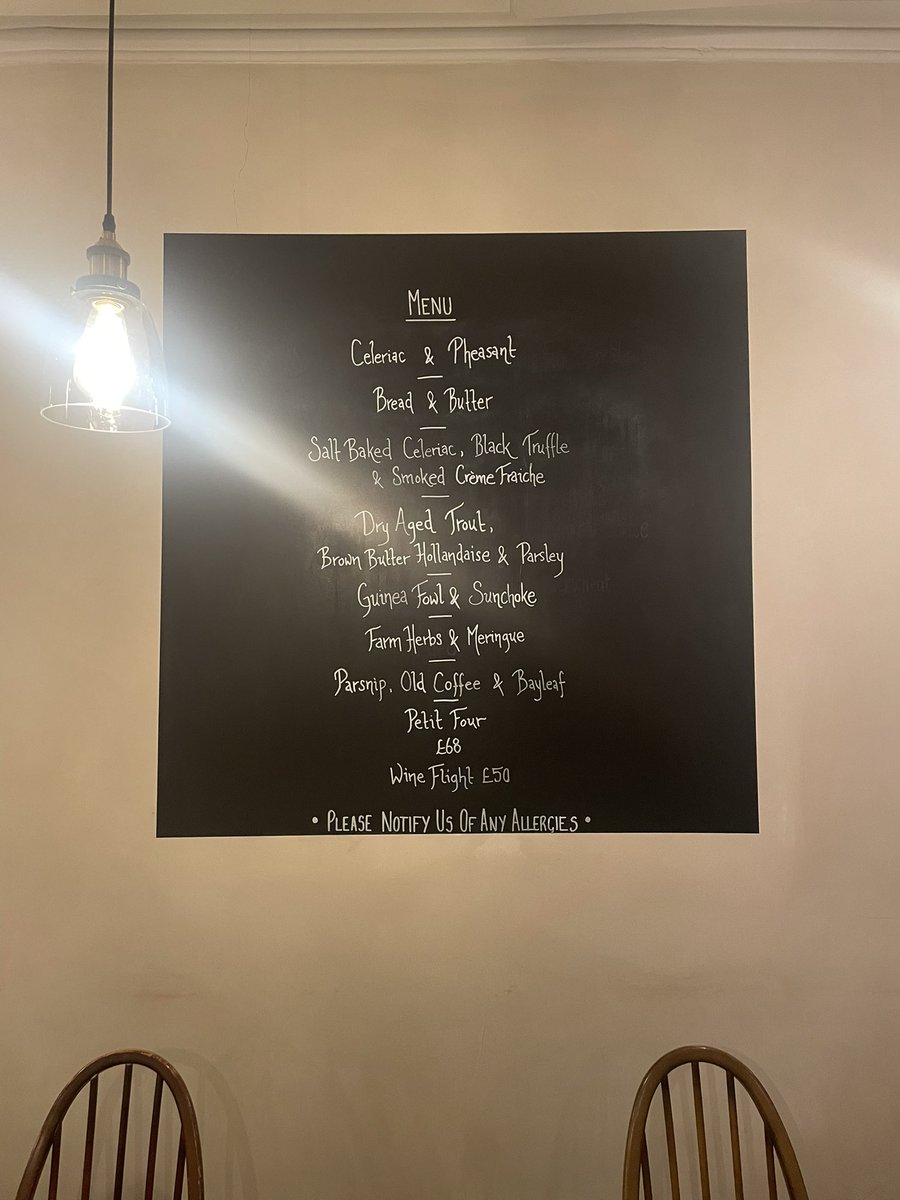 MENU
Celeriac & Pheasant
Bread & Butter
Salt Baked Celeriac, Black Truffle
& Smoked Crème Fraiche
Dry Aged Trout,
Brown Butter Hollandaise & Parsley
Guinea Fowl & Sunchoke
Farm Herbs & Meringue
Parsnip, Old Coffee & Bayleaf
Petit Four
£68
Wine Flight £50
• PLEASE NOTIFY US OF ANY ALLERGIES •